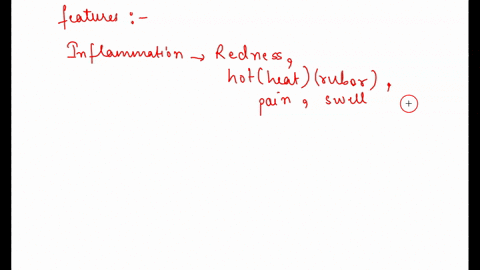 features :-
Inflammation → Redness,
hot(heat)(rubor),
pain, swell